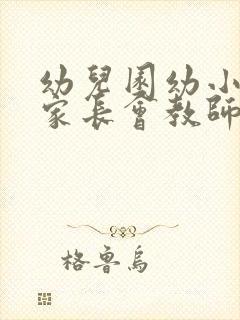 幼兒園幼小
家長會教師
格魯烏